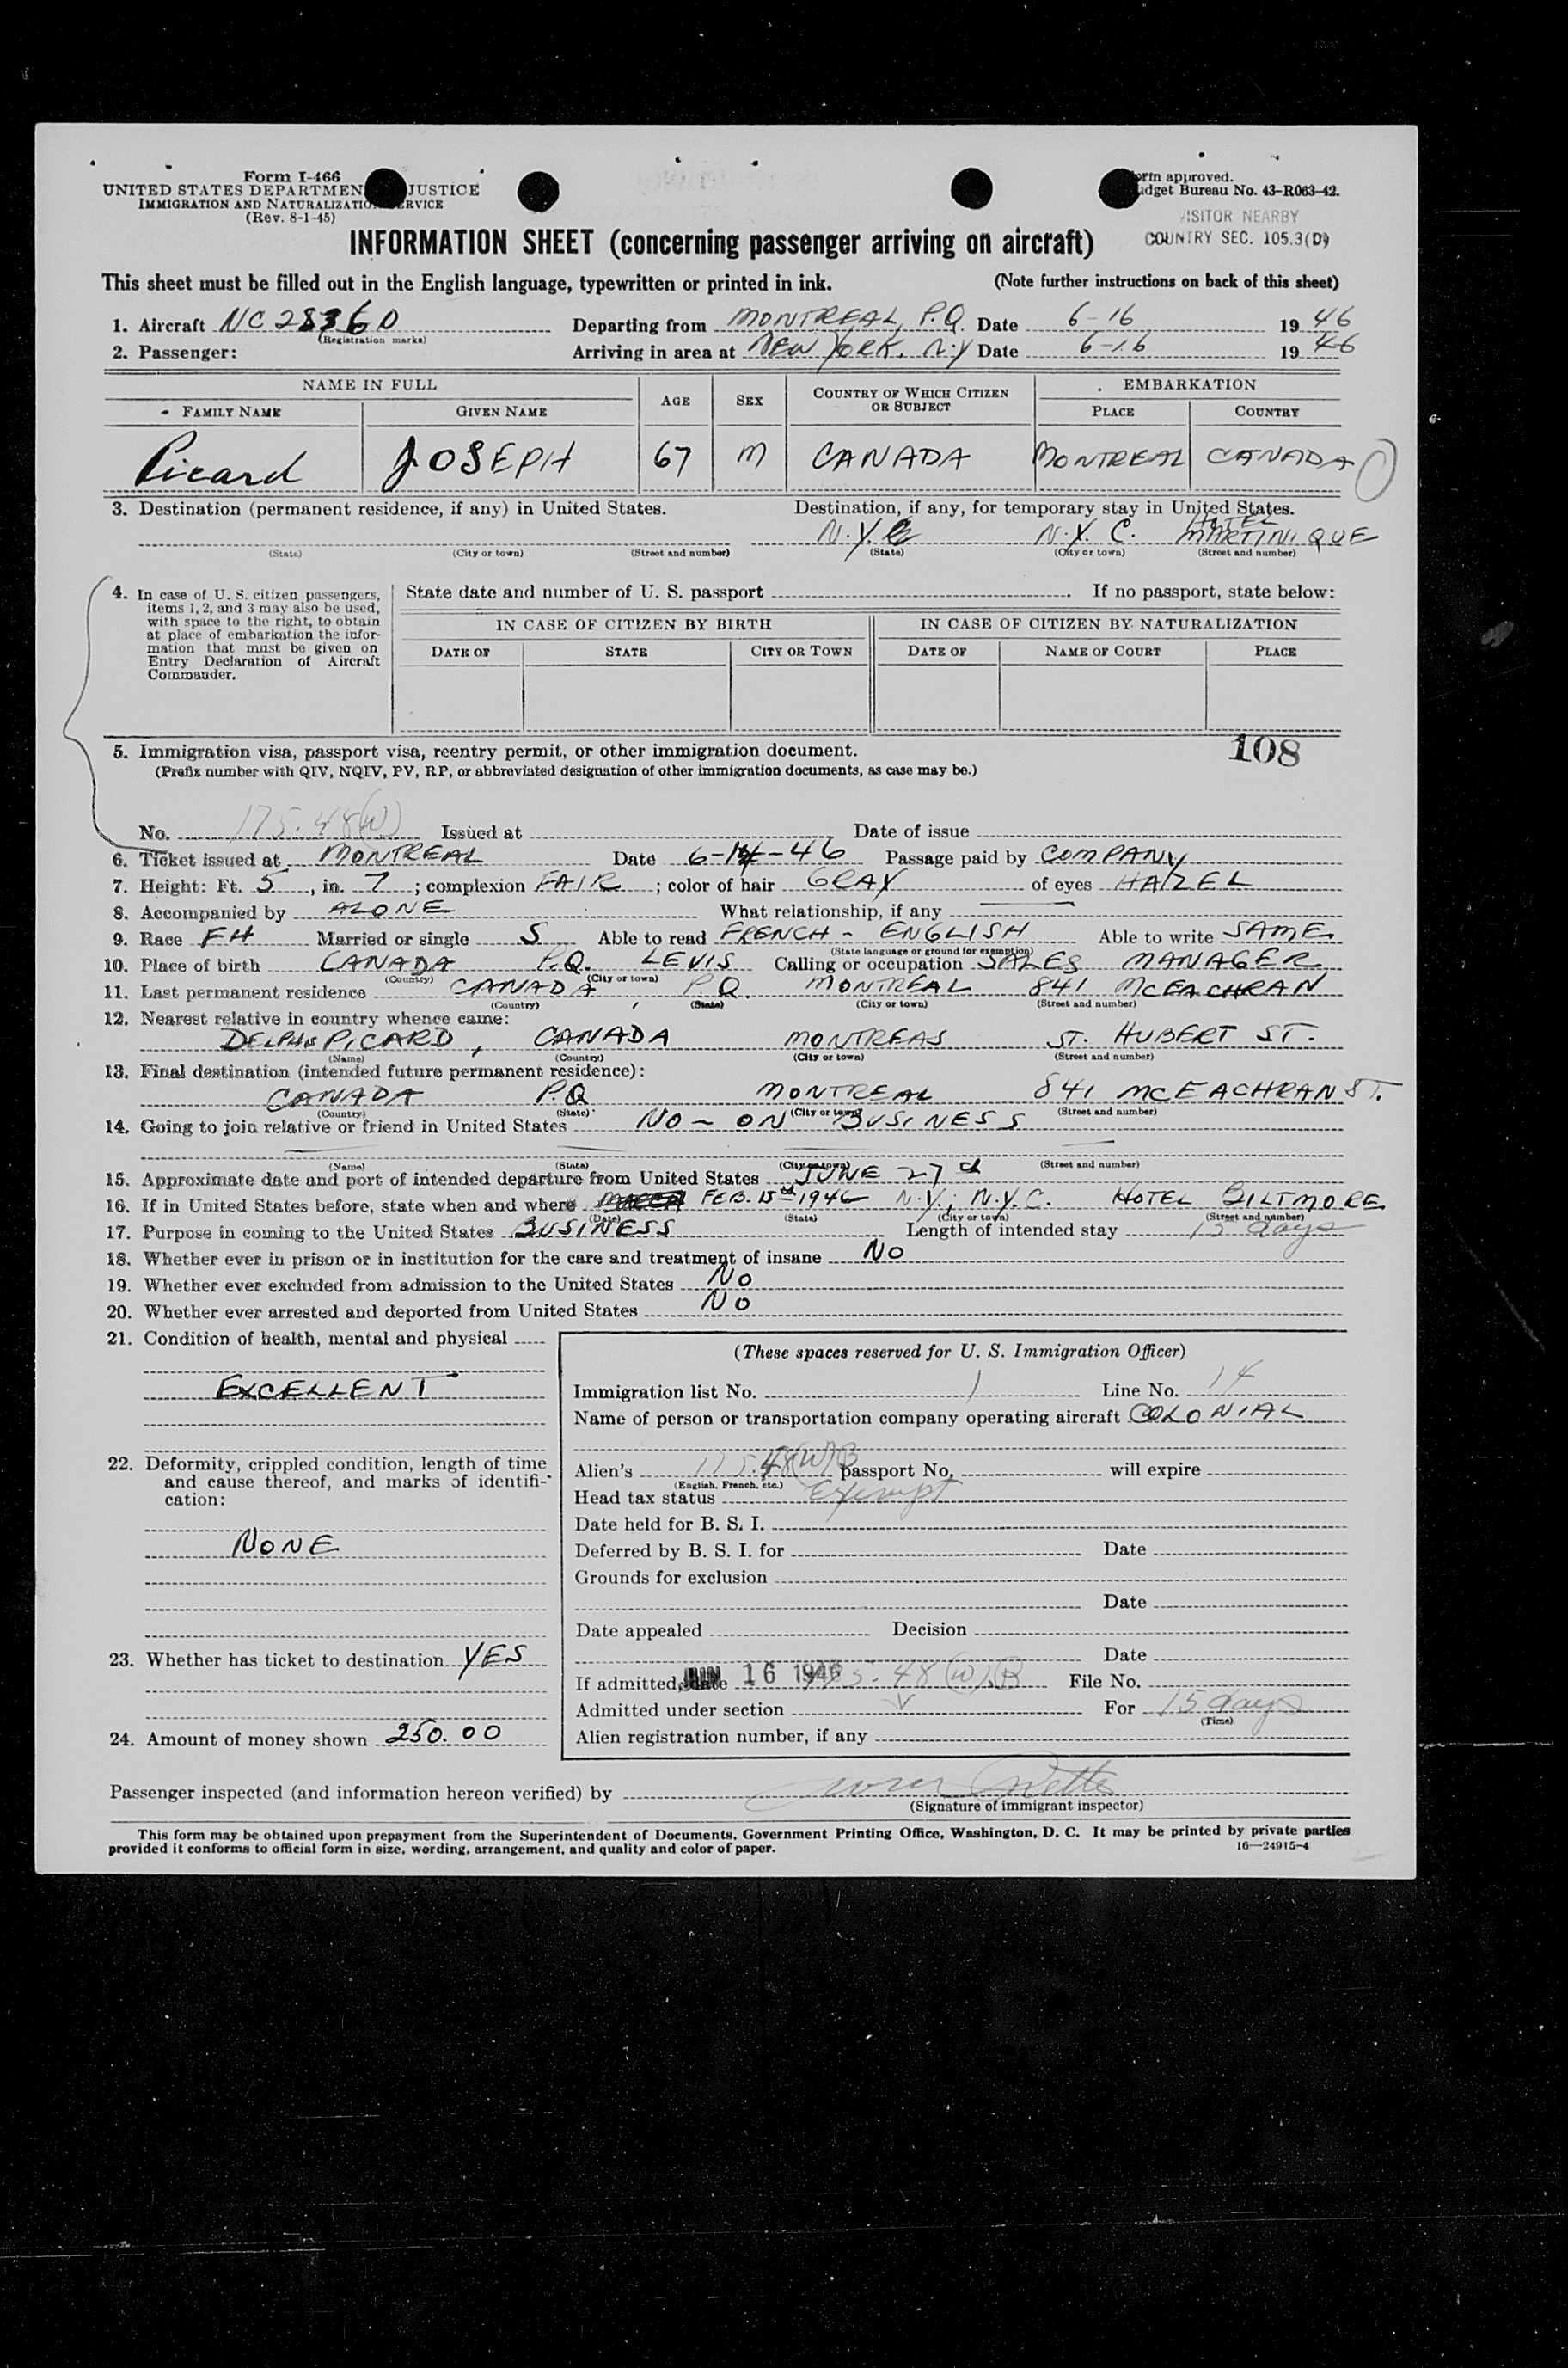 Form I-466
UNITED STATES DEPARTMEN JUSTICE
IMMIGRATION AND NATURALIZATIO ERVICE
(Rev. 8-1-45)
orm approved.
udget Bureau No. 43-R063-42.
VISITOR NEARBY
COUNTRY SEC. 105.3(D)
INFORMATION SHEET (concerning passenger arriving on aircraft)
This sheet must be filled out in the English language, typewritten or printed in ink. (Note further instructions on back of this sheet)
1. Aircraft NC 28360 Departing from MONTREAL, P.Q. Date 6-16 1946
(Registration marks)
2. Passenger: Arriving in area at NEW YORK. N.Y Date 6-16 1946
NAME IN FULL AGE SEX COUNTRY OF WHICH CITIZEN OR SUBJECT EMBARKATION
FAMILY NAME GIVEN NAME PLACE COUNTRY
Picard JOSEPH 67 M CANADA MONTREAL CANADA
3. Destination (permanent residence, if any) in United States. Destination, if any, for temporary stay in United States.
HOTEL
N.Y. N.Y.C. MARTINIQUE
(State) (City or town) (Street and number) (State) (City or town) (Street and number)
4. In case of U. S. citizen passengers, items 1, 2, and 3 may also be used, with space to the right, to obtain at place of embarkation the information that must be given on Entry Declaration of Aircraft Commander.
State date and number of U. S. passport . If no passport, state below:
IN CASE OF CITIZEN BY BIRTH IN CASE OF CITIZEN BY NATURALIZATION
DATE OF STATE CITY OR TOWN DATE OF NAME OF COURT PLACE
5. Immigration visa, passport visa, reentry permit, or other immigration document. 108
(Prefix number with QIV, NQIV, PV, RP, or abbreviated designation of other immigration documents, as case may be.)
No. 175.48(W) Issued at Date of issue
6. Ticket issued at MONTREAL Date 6-14-46 Passage paid by COMPANY
7. Height: Ft. 5, in. 7; complexion FAIR; color of hair GRAY of eyes HAZEL
8. Accompanied by ALONE What relationship, if any
9. Race FH Married or single S Able to read FRENCH - ENGLISH Able to write SAME
(State language or ground for exemption)
10. Place of birth CANADA P.Q. LEVIS Calling or occupation SALES MANAGER
(Country) (City or town)
11. Last permanent residence CANADA, P.Q. MONTREAL 841 MCEACHRAN
(Country) (State) (City or town) (Street and number)
12. Nearest relative in country whence came:
DELPHIS PICARD, CANADA MONTREAS ST. HUBERT ST.
(Name) (Country) (City or town) (Street and number)
13. Final destination (intended future permanent residence):
CANADA P.Q MONTREAL 841 MCEACHRAN ST.
(Country) (State) (City or town) (Street and number)
14. Going to join relative or friend in United States NO - ON BUSINESS
(Name) (State) (City or town) (Street and number)
15. Approximate date and port of intended departure from United States JUNE 27
16. If in United States before, state when and where FEB. 15th 1946 N.Y., N.Y.C. HOTEL BILTMORE
(Date) (State) (City or town) (Street and number)
17. Purpose in coming to the United States BUSINESS Length of intended stay 15 days
18. Whether ever in prison or in institution for the care and treatment of insane NO
19. Whether ever excluded from admission to the United States NO
20. Whether ever arrested and deported from United States NO
21. Condition of health, mental and physical
EXCELLENT
22. Deformity, crippled condition, length of time and cause thereof, and marks of identification:
NONE
23. Whether has ticket to destination YES
24. Amount of money shown 250.00
(These spaces reserved for U. S. Immigration Officer)
Immigration list No. 1 Line No. 14
Name of person or transportation company operating aircraft COLONIAL
Alien's 175.48(W)B passport No. will expire
(English, French, etc.)
Head tax status Exempt
Date held for B. S. I.
Deferred by B. S. I. for Date
Grounds for exclusion
Date
Date appealed Decision
Date
If admitted, date JUN 16 1946 175.48(W)B File No.
Admitted under section For 15 days
(Time)
Alien registration number, if any
Passenger inspected (and information hereon verified) by
(Signature of immigrant inspector)
This form may be obtained upon prepayment from the Superintendent of Documents, Government Printing Office, Washington, D. C. It may be printed by private parties
provided it conforms to official form in size, wording, arrangement, and quality and color of paper. 16—24915-4